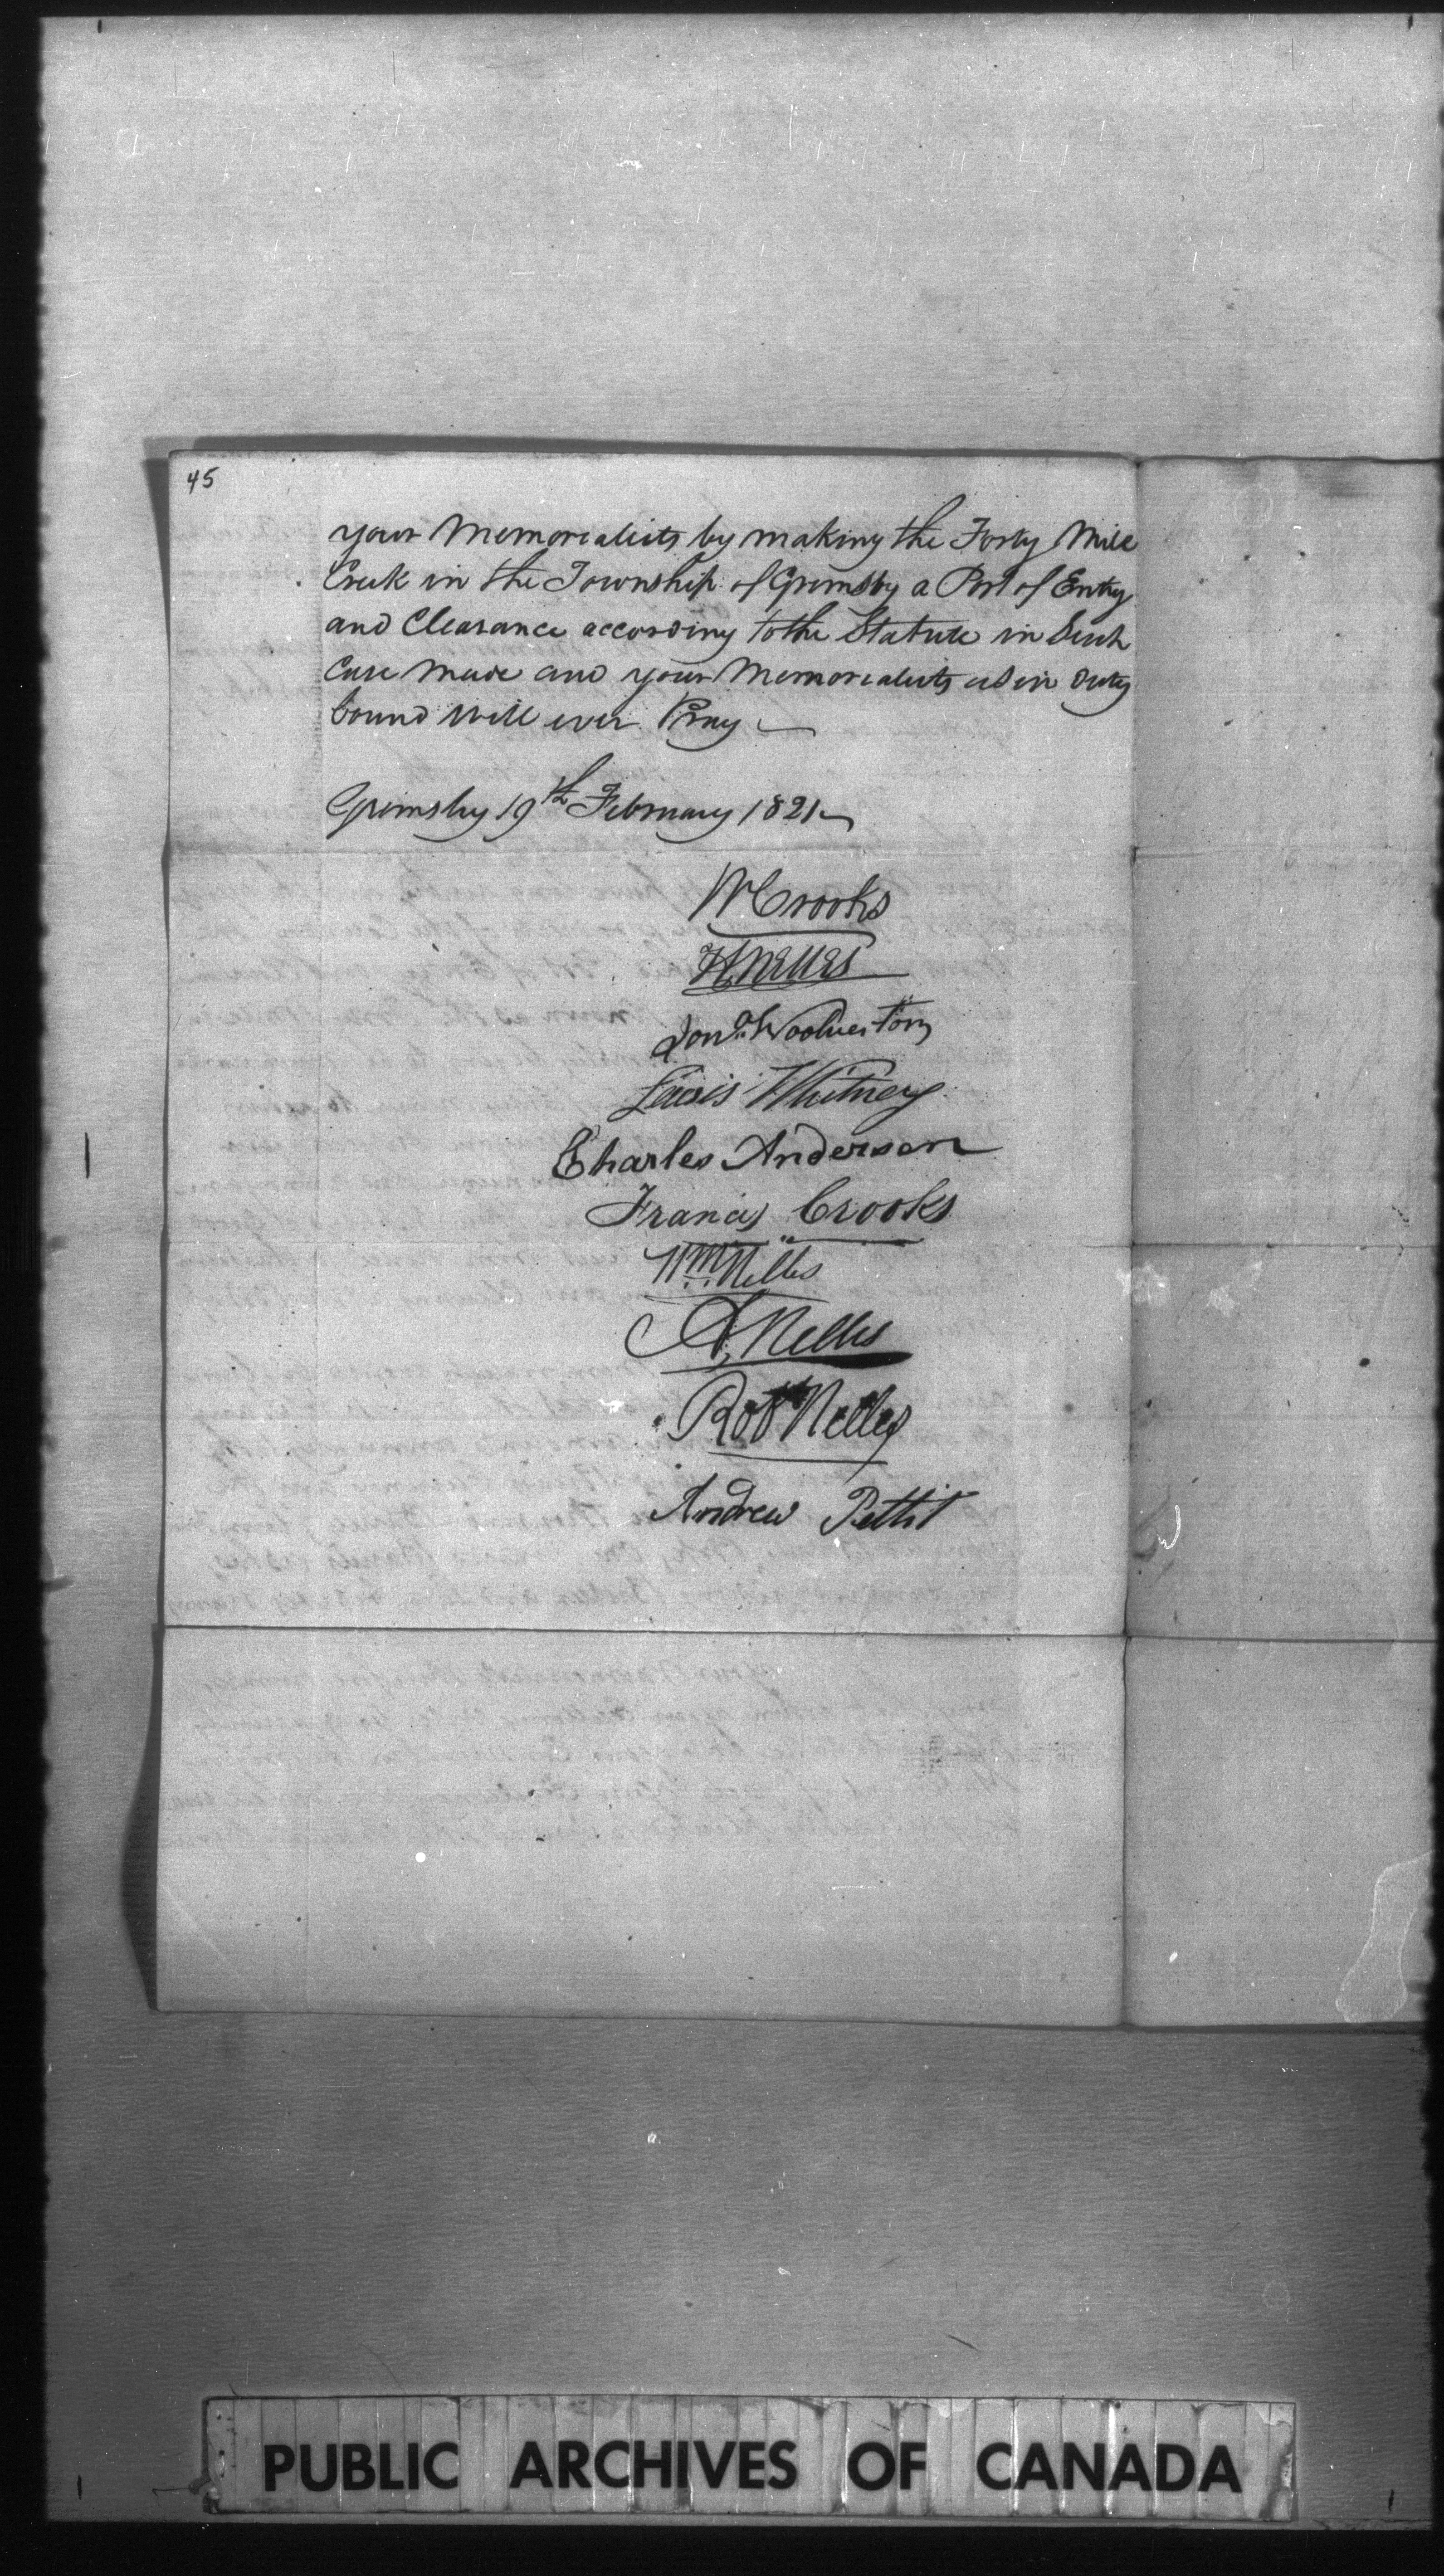 45
your Memorialists by making the Forty Mile
Creek in the Township of Grimsby a Port of Entry
and Clearance according to the Statute in Such
Case Made and your Memorialists as in duty
bound will ever Pray
Grimsby 19th February 1821
W Crooks
H Nelles
Jona Woolverton
Lewis Whitney
Charles Anderson
Francis Crooks
Wm Nelles
A, Nelles
Robt Nelles
Andrew Pettit
PUBLIC ARCHIVES OF CANADA